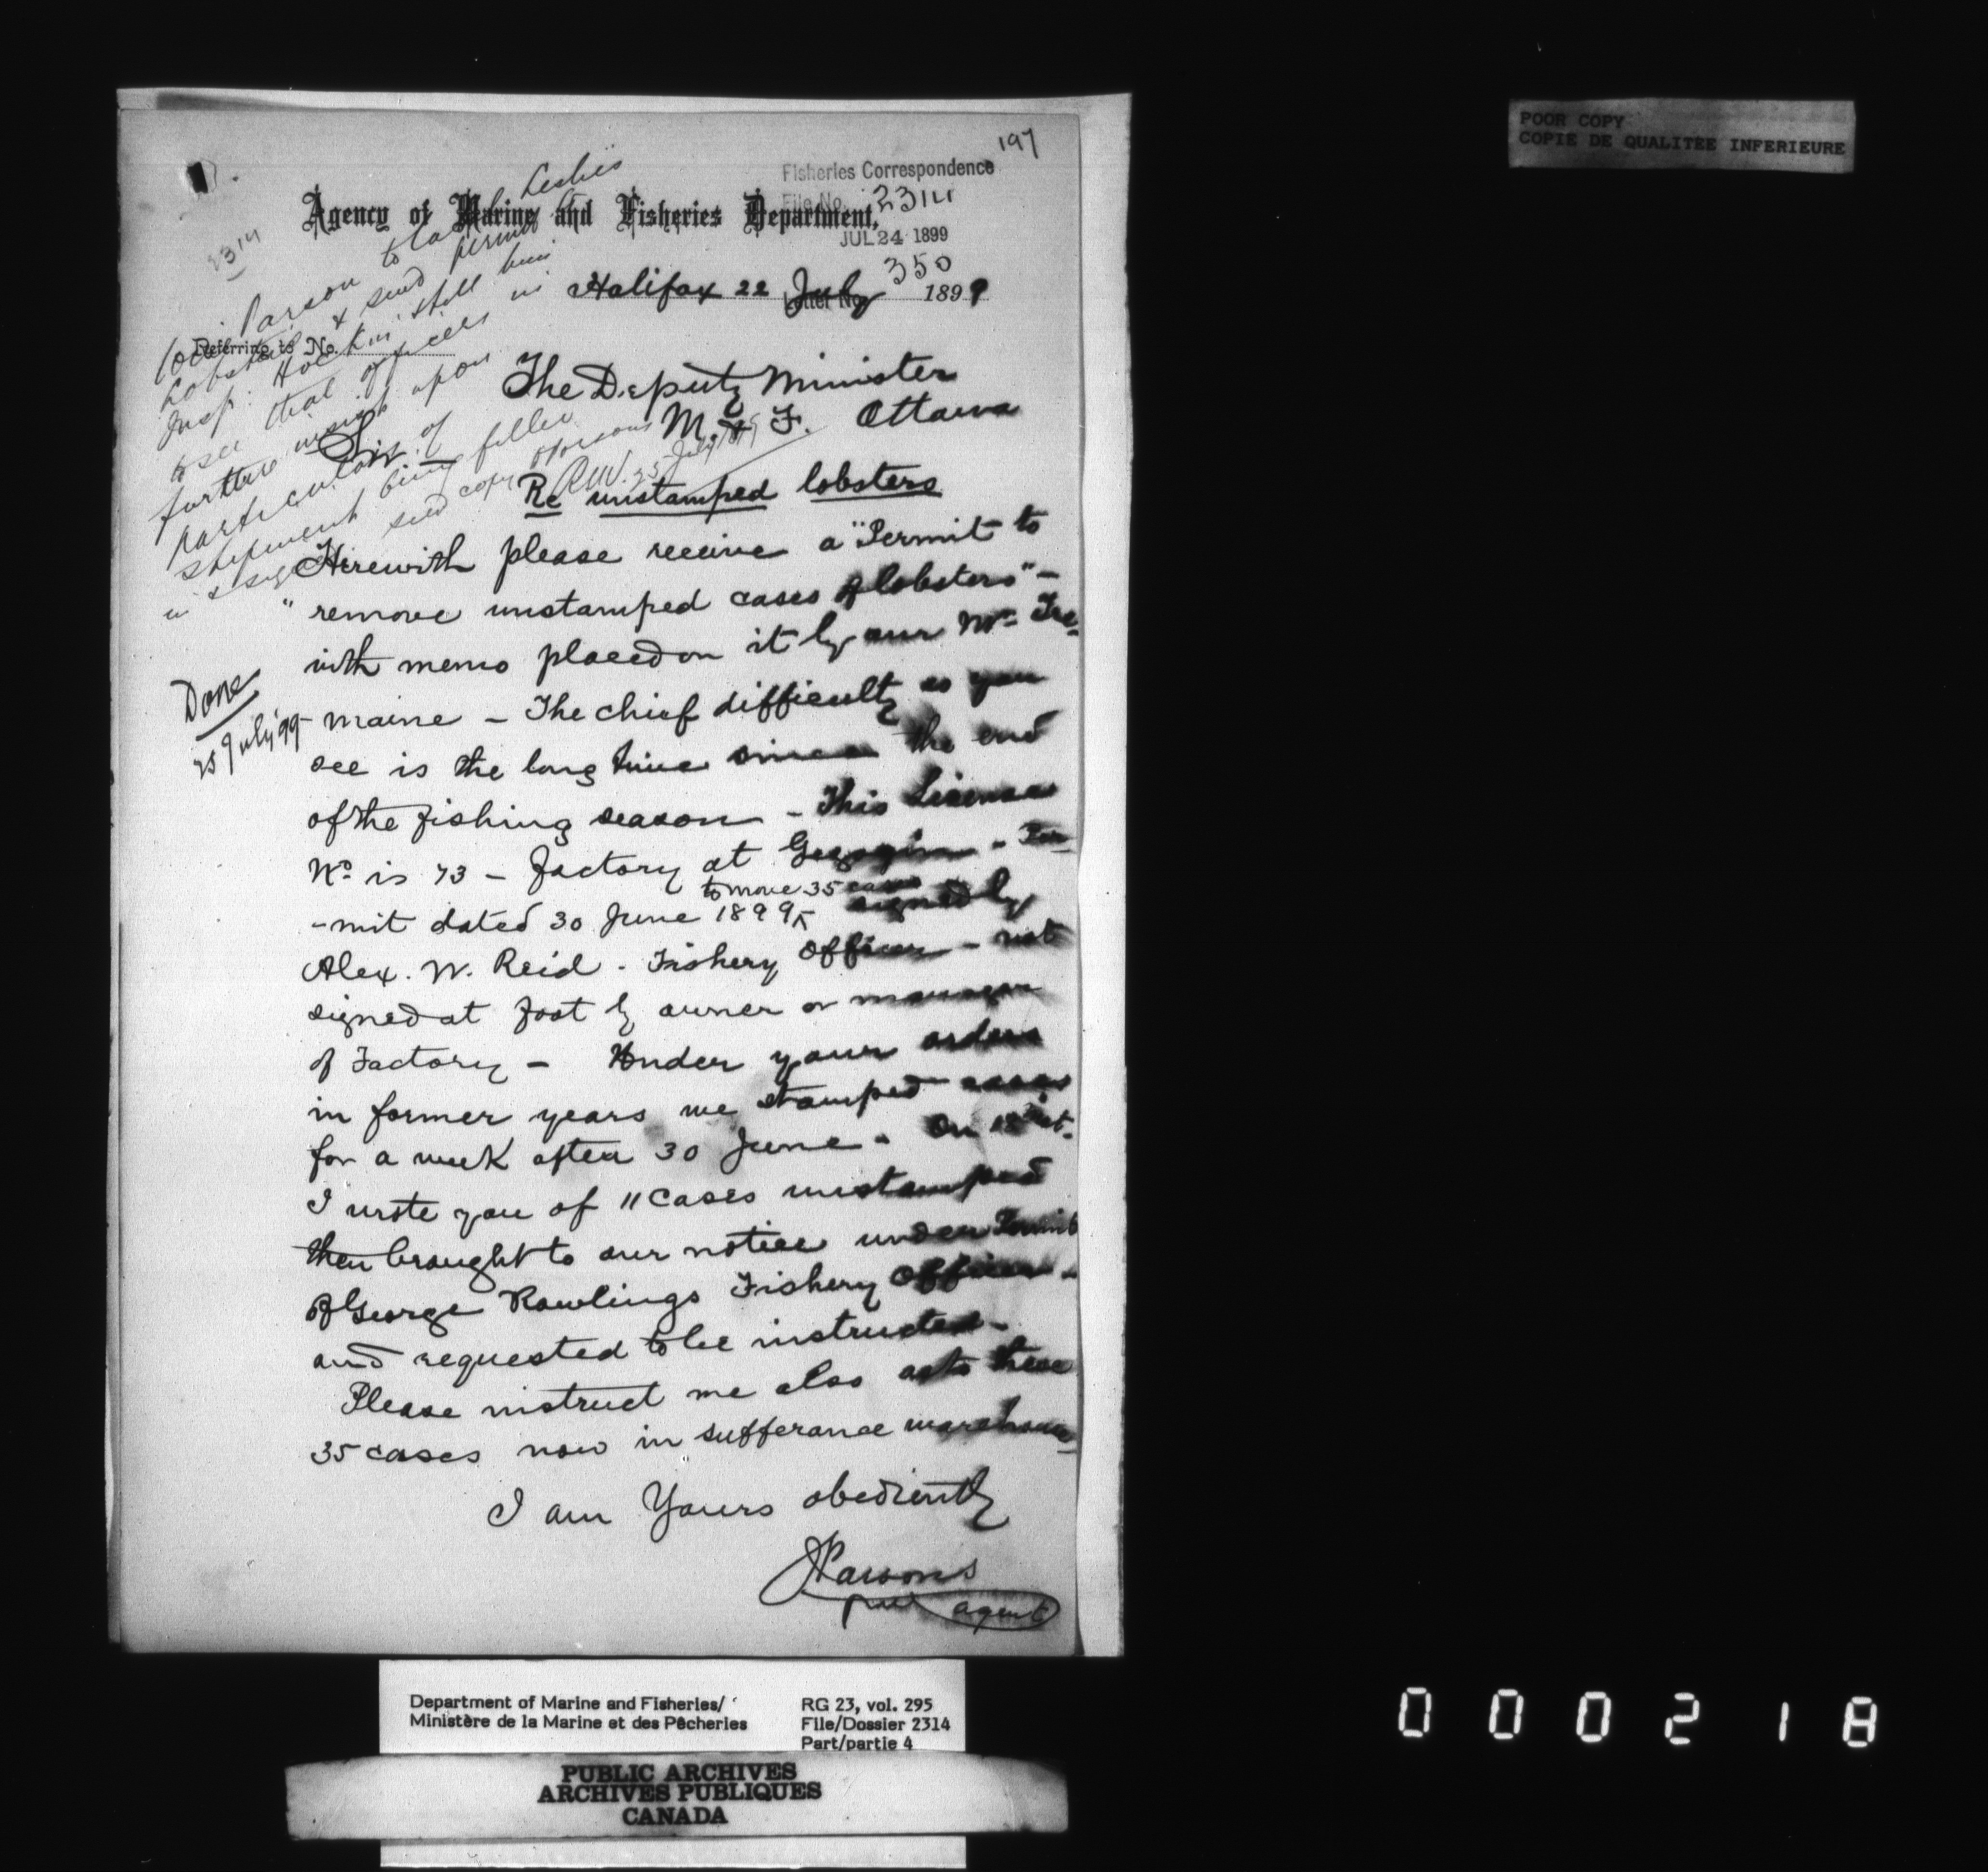 POOR COPY
COPIE DE QUALITEE INFERIEURE
197
Fisheries Correspondence
File No. 2314
JUL 24 1899
350
Letter No.
Agency of Marine and Fisheries Department,
2314
Halifax 22 July 1899
Referring to No.
Parson to
Leslie
Lobsters & send permit
Insp: Hockin still him
to see that officers in
further insist upon
particulars of
shipment being filled
in & signed send copy Parsons
RW. 25 July 1899
The Deputy Minister
M. & F. Ottawa
Sir.
Re unstamped lobsters
Herewith please receive a "Permit to
" remove unstamped cases of lobsters" -
with memo placed on it by our Mr. Tre-
Done
25 July '99
maine - The chief difficulty as you
see is the long time since the end
of the fishing season - This License
No. is 73 - Factory at - Per-
to move 35 cases
-mit dated 30 June 1899 signed by
Alex. W. Reid - Fishery Officer - not
signed at foot by owner or manager
of Factory - Under your orders
in former years we stamped cases
for a week after 30 June - On 18 inst.
I wrote you of 11 cases unstamped
then brought to our notice under Permit
of George Rowlings Fishery Officer -
and requested to be instructed -
Please instruct me also as to these
35 cases now in sufferance warehouse
I am Yours obediently
JParsons
agent
Department of Marine and Fisheries/
Ministère de la Marine et des Pêcheries
RG 23, vol. 295
File/Dossier 2314
Part/partie 4
PUBLIC ARCHIVES
ARCHIVES PUBLIQUES
CANADA
000218